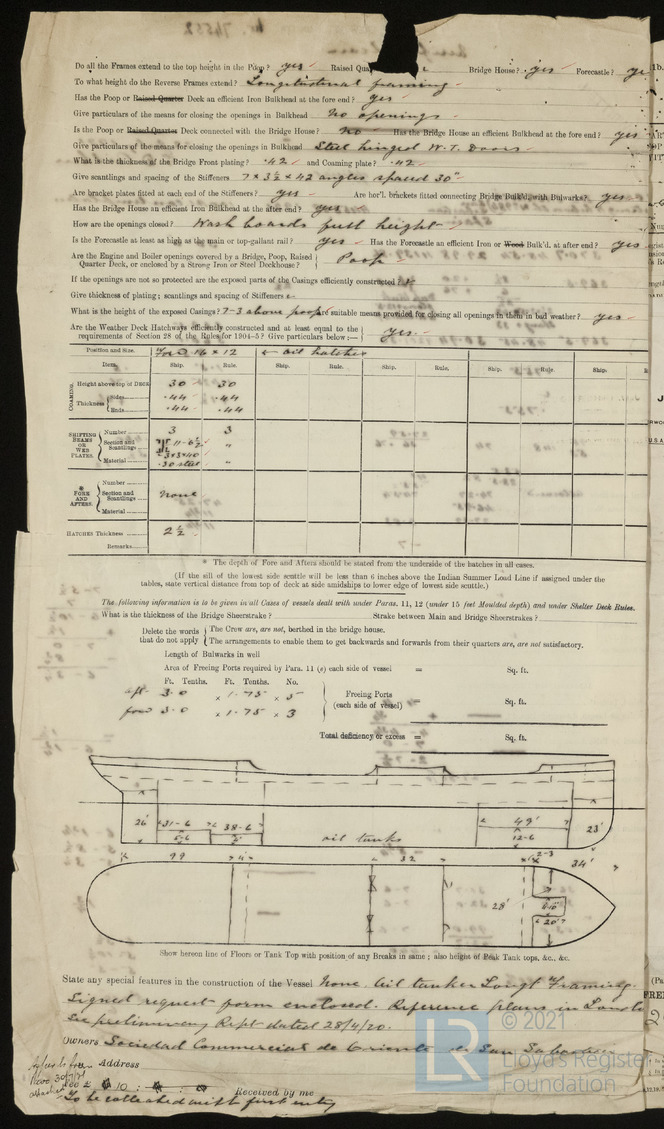 Do all the Frames extend to the top height in the Poop? yes Raised Qua Bridge House? yes Forecastle? ye
To what height do the Reverse Frames extend? Longitudinal framing
Has the Poop or Raised Quarter Deck an efficient Iron Bulkhead at the fore end? yes
Give particulars of the means for closing the openings in Bulkhead No openings
Is the Poop or Raised Quarter Deck connected with the Bridge House? No Has the Bridge House an efficient Bulkhead at the fore end? yes
Give particulars of the means for closing the openings in Bulkhead Steel hinged W.T. Doors
What is the thickness of the Bridge Front plating? .42 and Coaming plate? .42
Give scantlings and spacing of the Stiffeners 7 x 3½ x 42 angles spaced 30"
Are bracket plates fitted at each end of the Stiffeners? yes Are hor'l. brackets fitted connecting Bridge Bulk'd, with Bulwarks? yes
Has the Bridge House an efficient Iron Bulkhead at the after end? yes
How are the openings closed? Wash boards full height
Is the Forecastle at least as high as the main or top-gallant rail? yes Has the Forecastle an efficient Iron or Wood Bulk'd. at after end? yes
Are the Engine and Boiler openings covered by a Bridge, Poop, Raised
Quarter Deck, or enclosed by a Strong Iron or Steel Deckhouse? Poop
If the openings are not so protected are the exposed parts of the Casings efficiently constructed?
Give thickness of plating; scantlings and spacing of Stiffeners
What is the height of the exposed Casings? 7-3 above poop Are suitable means provided for closing all openings in them in bad weather? yes
Are the Weather Deck Hatchways efficiently constructed and at least equal to the
requirements of Section 28 of the Rules for 1904-5? Give particulars below:— yes
Position and Size. Ford 16 x 12 ← oil hatches
Item. Ship. Rule. Ship. Rule. Ship. Rule. Ship. Rule. Ship.
COAMING.
Height above top of DECK 30 30
Thickness Sides .44 .44
Ends .44 .44
SHIFTING BEAMS OR WEB PLATES.
Number 3 3
Section and Scantlings 11-6½ "
3x3x40
Material .30 steel "
* FORE AND AFTERS.
Number
Section and Scantlings None
Material
HATCHES Thickness 2½
Remarks
* The depth of Fore and Afters should be stated from the underside of the hatches in all cases.
(If the sill of the lowest side scuttle will be less than 6 inches above the Indian Summer Load Line if assigned under the
tables, state vertical distance from top of deck at side amidships to lower edge of lowest side scuttle.)
The following information is to be given in all Cases of vessels dealt with under Paras. 11, 12 (under 15 feet Moulded depth) and under Shelter Deck Rules.
What is the thickness of the Bridge Sheerstrake? Strake between Main and Bridge Sheerstrakes?
Delete the words that do not apply
The Crew are, are not, berthed in the bridge house.
The arrangements to enable them to get backwards and forwards from their quarters are, are not satisfactory.
Length of Bulwarks in well
Area of Freeing Ports required by Para. 11 (e) each side of vessel = Sq. ft.
Ft. Tenths. Ft. Tenths. No.
aft 3.0 x 1.75 x 5
ford 3.0 x 1.75 x 3
Freeing Ports (each side of vessel) = Sq. ft.
Total deficiency or excess = Sq. ft.
26' 31-6 38-6 oil tanks 49' 12-6 23'
99 4 32 2-3 34'
28' 20'
Show hereon line of Floors or Tank Top with position of any Breaks in same; also height of Peak Tank tops, &c., &c.
State any special features in the construction of the Vessel None. Oil tanker Longl Framing.
Signed request form enclosed. Reference plans in London
See preliminary Rept dated 28/4/20.
Owners Sociedad Commercial de Oriente
Address
Fee £ 10 : Received by me
To be collected with first entry
© 2021
LR
Lloyd's Register
Foundation